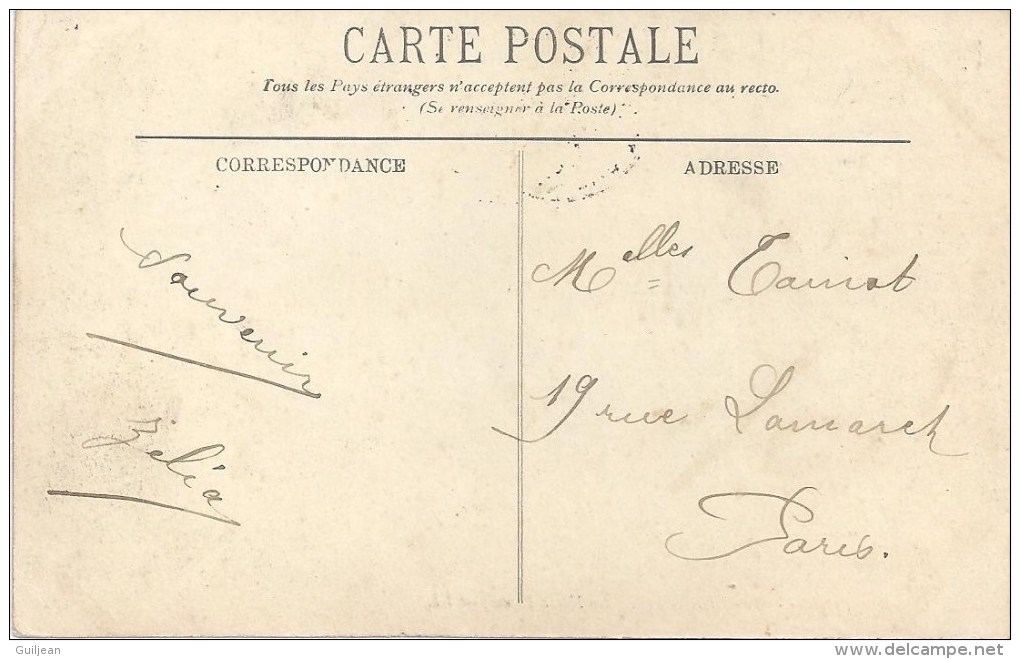 CARTE POSTALE
Tous les Pays étrangers n'acceptent pas la Correspondance au recto.
(Se renseigner à la Poste)
CORRESPONDANCE
ADRESSE
Souvenir
Zélia
Melles
19 rue Lamarck
Paris.
Guiljean
delcampe.net